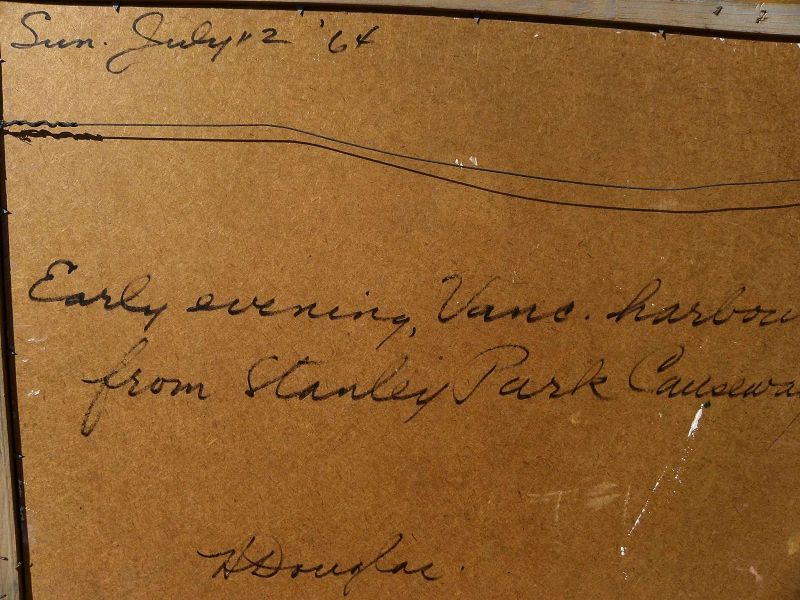 Sun. July 12 '64
Early evening, Vanc. harbou
from Stanley Park Causeway
H Douglas.